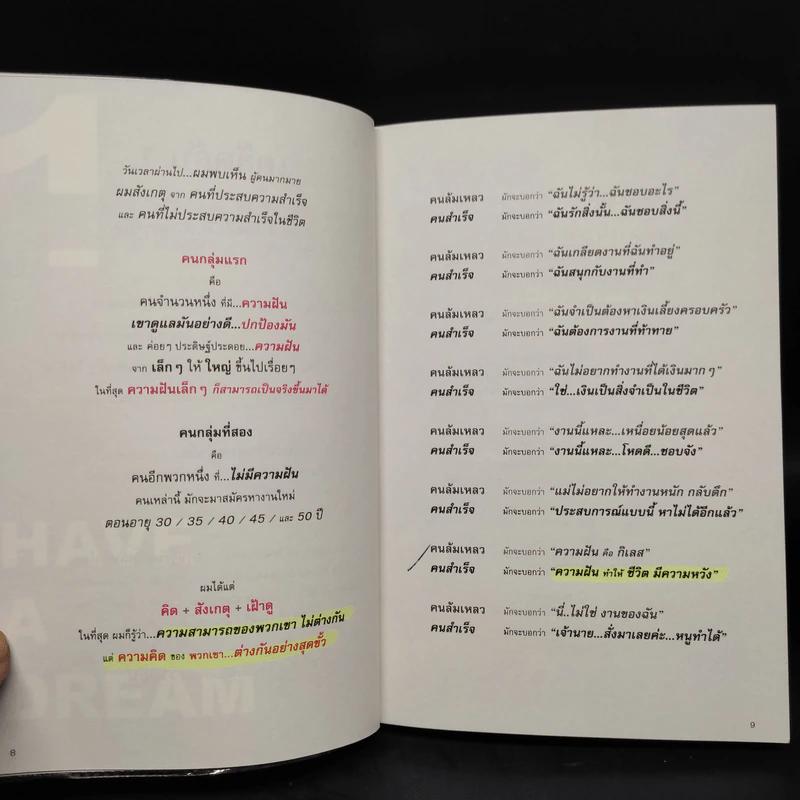 วันเวลาผ่านไป...ผมพบเห็น ผู้คนมากมาย
ผมสังเกตุ จาก คนที่ประสบความสำเร็จ
และ คนที่ไม่ประสบความสำเร็จในชีวิต
คนกลุ่มแรก
คือ
คนจำนวนหนึ่ง ที่มี...ความฝัน
เขาดูแลมันอย่างดี...ปกป้องมัน
และ ค่อยๆ ประดิษฐ์ประดอย...ความฝัน
จาก เล็กๆ ให้ ใหญ่ ขึ้นไปเรื่อยๆ
ในที่สุด ความฝันเล็กๆ ก็สามารถเป็นจริงขึ้นมาได้
คนกลุ่มที่สอง
คือ
คนอีกพวกหนึ่ง ที่...ไม่มีความฝัน
คนเหล่านี้ มักจะมาสมัครหางานใหม่
ตอนอายุ 30 / 35 / 40 / 45 / และ 50 ปี
ผมได้แต่
คิด + สังเกตุ + เฝ้าดู
ในที่สุด ผมก็รู้ว่า...ความสามารถของพวกเขา ไม่ต่างกัน
แต่ ความคิด ของ พวกเขา...ต่างกันอย่างสุดขั้ว
1
HAVE
A
DREAM
8
คนล้มเหลว มักจะบอกว่า "ฉันไม่รู้ว่า...ฉันชอบอะไร"
คนสำเร็จ มักจะบอกว่า "ฉันรักสิ่งนั้น...ฉันชอบสิ่งนี้"
คนล้มเหลว มักจะบอกว่า "ฉันเกลียดงานที่ฉันทำอยู่"
คนสำเร็จ มักจะบอกว่า "ฉันสนุกกับงานที่ทำ"
คนล้มเหลว มักจะบอกว่า "ฉันจำเป็นต้องหาเงินเลี้ยงครอบครัว"
คนสำเร็จ มักจะบอกว่า "ฉันต้องการงานที่ท้าทาย"
คนล้มเหลว มักจะบอกว่า "ฉันไม่อยากทำงานที่ได้เงินมากๆ"
คนสำเร็จ มักจะบอกว่า "ใช่...เงินเป็นสิ่งจำเป็นในชีวิต"
คนล้มเหลว มักจะบอกว่า "งานนี้แหละ...เหนื่อยน้อยสุดแล้ว"
คนสำเร็จ มักจะบอกว่า "งานนี้แหละ...โหดดี...ชอบจัง"
คนล้มเหลว มักจะบอกว่า "แม่ไม่อยากให้ทำงานหนัก กลับดึก"
คนสำเร็จ มักจะบอกว่า "ประสบการณ์แบบนี้ หาไม่ได้อีกแล้ว"
คนล้มเหลว มักจะบอกว่า "ความฝัน คือ กิเลส"
คนสำเร็จ มักจะบอกว่า "ความฝัน ทำให้ ชีวิต มีความหวัง"
คนล้มเหลว มักจะบอกว่า "นี่..ไม่ใช่ งานของฉัน"
คนสำเร็จ มักจะบอกว่า "เจ้านาย...สั่งมาเลยค่ะ...หนูทำได้"
9